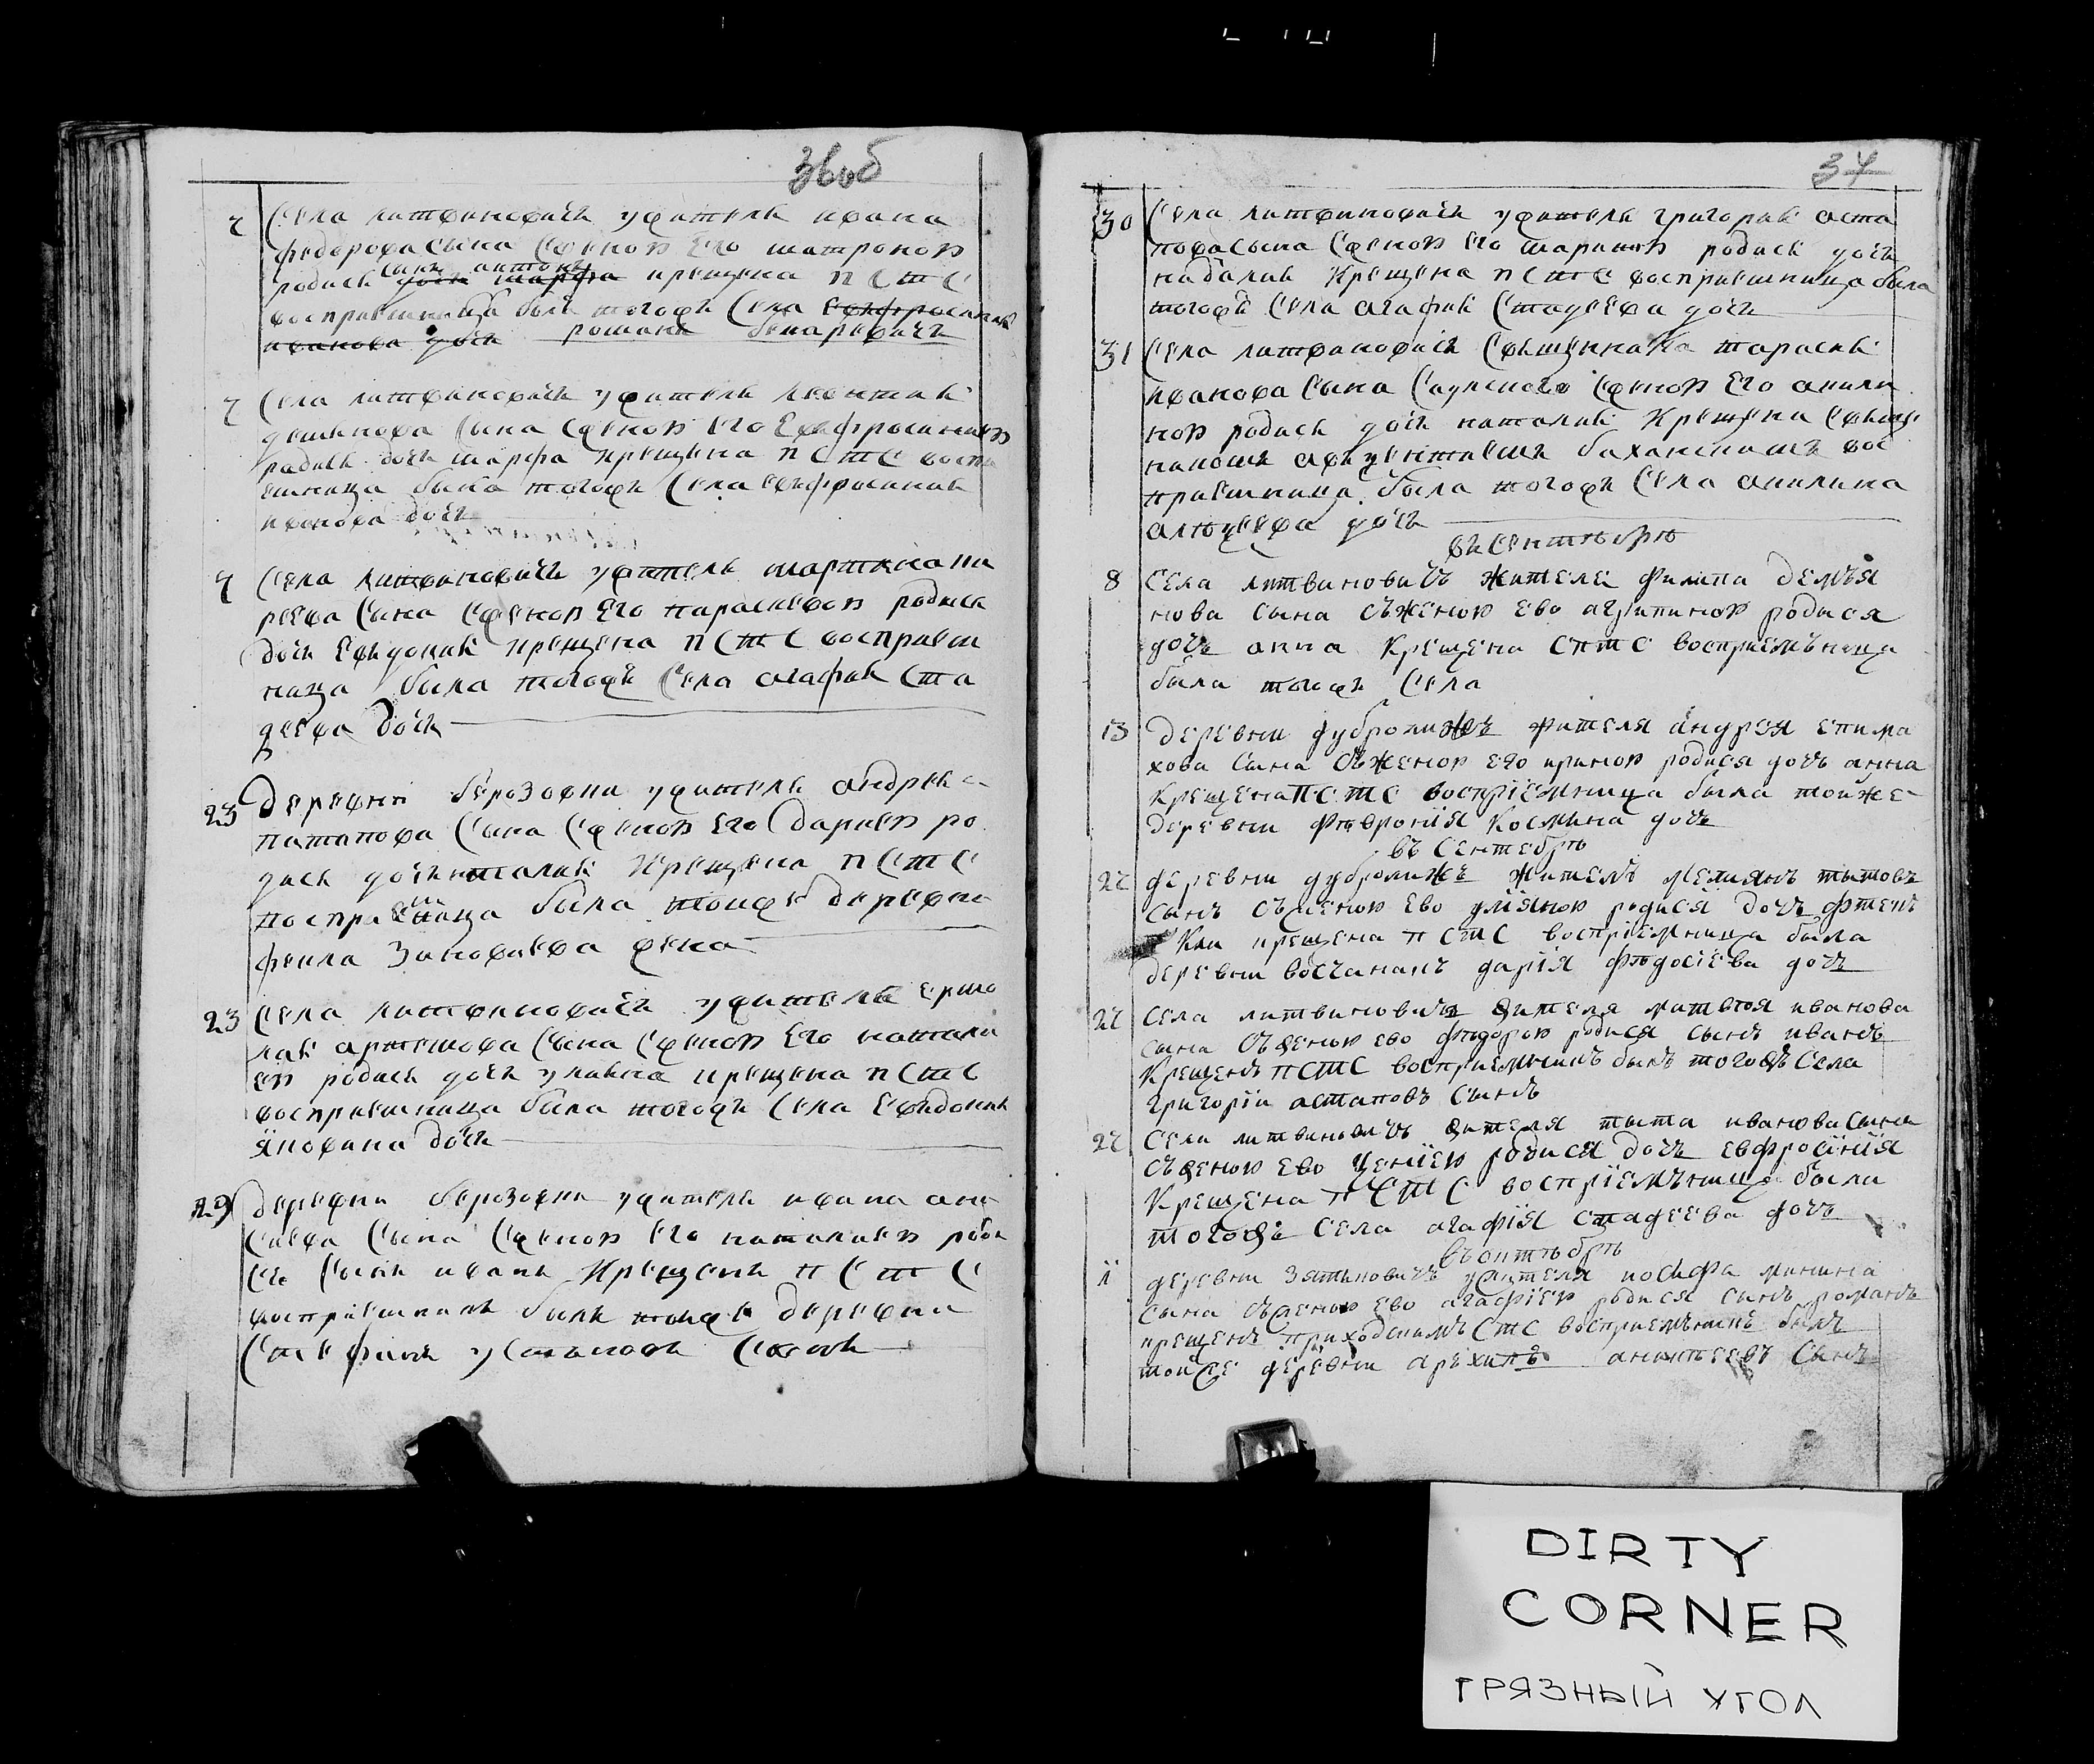 36об
2 Села литвиновичъ жителя ивана
федорова сына сженою его матроною
родися сынъ антонъ дочь марфа крещена п с т с
восприемница былъ тогожъ села евфросиния
иванова дочь романъ
7 Села литвиновичъ жителя леонтия
демянова сына сженою его евфросиниею
родися дочь марфа крещена п с т с воспри
емница была тогожъ села евфросиния
иванова дочь
9 Села литвиновичъ жителя мартина ки
реева сына сженою его параскевою родися
дочь евдокия крещена п с т с восприем
ница была тогожъ села агафия ста
деева дочь
23 деревни березовки жителя андрея
патапова сына сженою его дариею ро
дися дочь наталия крещена п с т с
восприемница была тоижъ деревни
фекла зиновиева жена
23 Села литвиновичъ жителя ермо
лая артемова сына сженою его натали
ею родися дочь улияна крещена п с т с
восприемница была тогожъ села евдокия
дочь
29 деревни березовки жителя ивана али
сеева сына сженою его наталиею роди
ся сынъ иванъ крещенъ п с т с
восприемникъ былъ тоижъ деревни
стефанъ сынъ
37
30 Села литвиновичъ жителя григория аста
пова сына сженою его мариною родися дочь
наталия крещена п с т с восприемница была
тогожъ села агафия стадеева дочь
31 Села литвиновичъ священника тарасия
иванова сына сженою его акили
ною родися дочь наталия крещена свяще
никомъ вос
приемница была тогожъ села акилина
алексеева дочь
въ сентябрѣ
8 Села литвиновичъ жителя филипа демъя
нова сына съженою ево агрипиною родися
дочь анна крещена с п т с восприемъница
была тогожъ села
13 деревни дубролижъ жителя андрѣя епима
хова сына съженою его ириною родися дочь анна
крещена п с т с воспрiемница была тойже
деревни фѣвронiя космина дочь
въ Сентебрѣ
22 деревни дубролижъ жителъ титовъ
сынъ съженою ево улiяною родися дочь фтекъ
кли крещена п с т с воспрiемница была
деревни дарiя фѣдосiева дочь
22 Села литвиновичъ жителя матвѣя иванова
сына съженою ево фѣдорою родися сынъ иванъ
крещенъ п с т с восприемникъ былъ тогожъ села
григорiи астаповъ сынъ
22 Села литвиновичъ жителя тита иванова сына
съженою ево ксенiею родися дочь евфросiнiя
крещена п с т с воспрiемъница была
тогожъ села агафiя стадеева дочь
въ октябрѣ
ii деревни жителя иосифа минина
сына съженою ево агафiею родися сынъ романъ
крещенъ приходскимъ с т с восприемъникъ былъ
тойже деревни архипъ сынъ
DIRTY
CORNER
ГРЯЗНЫЙ УГОЛ